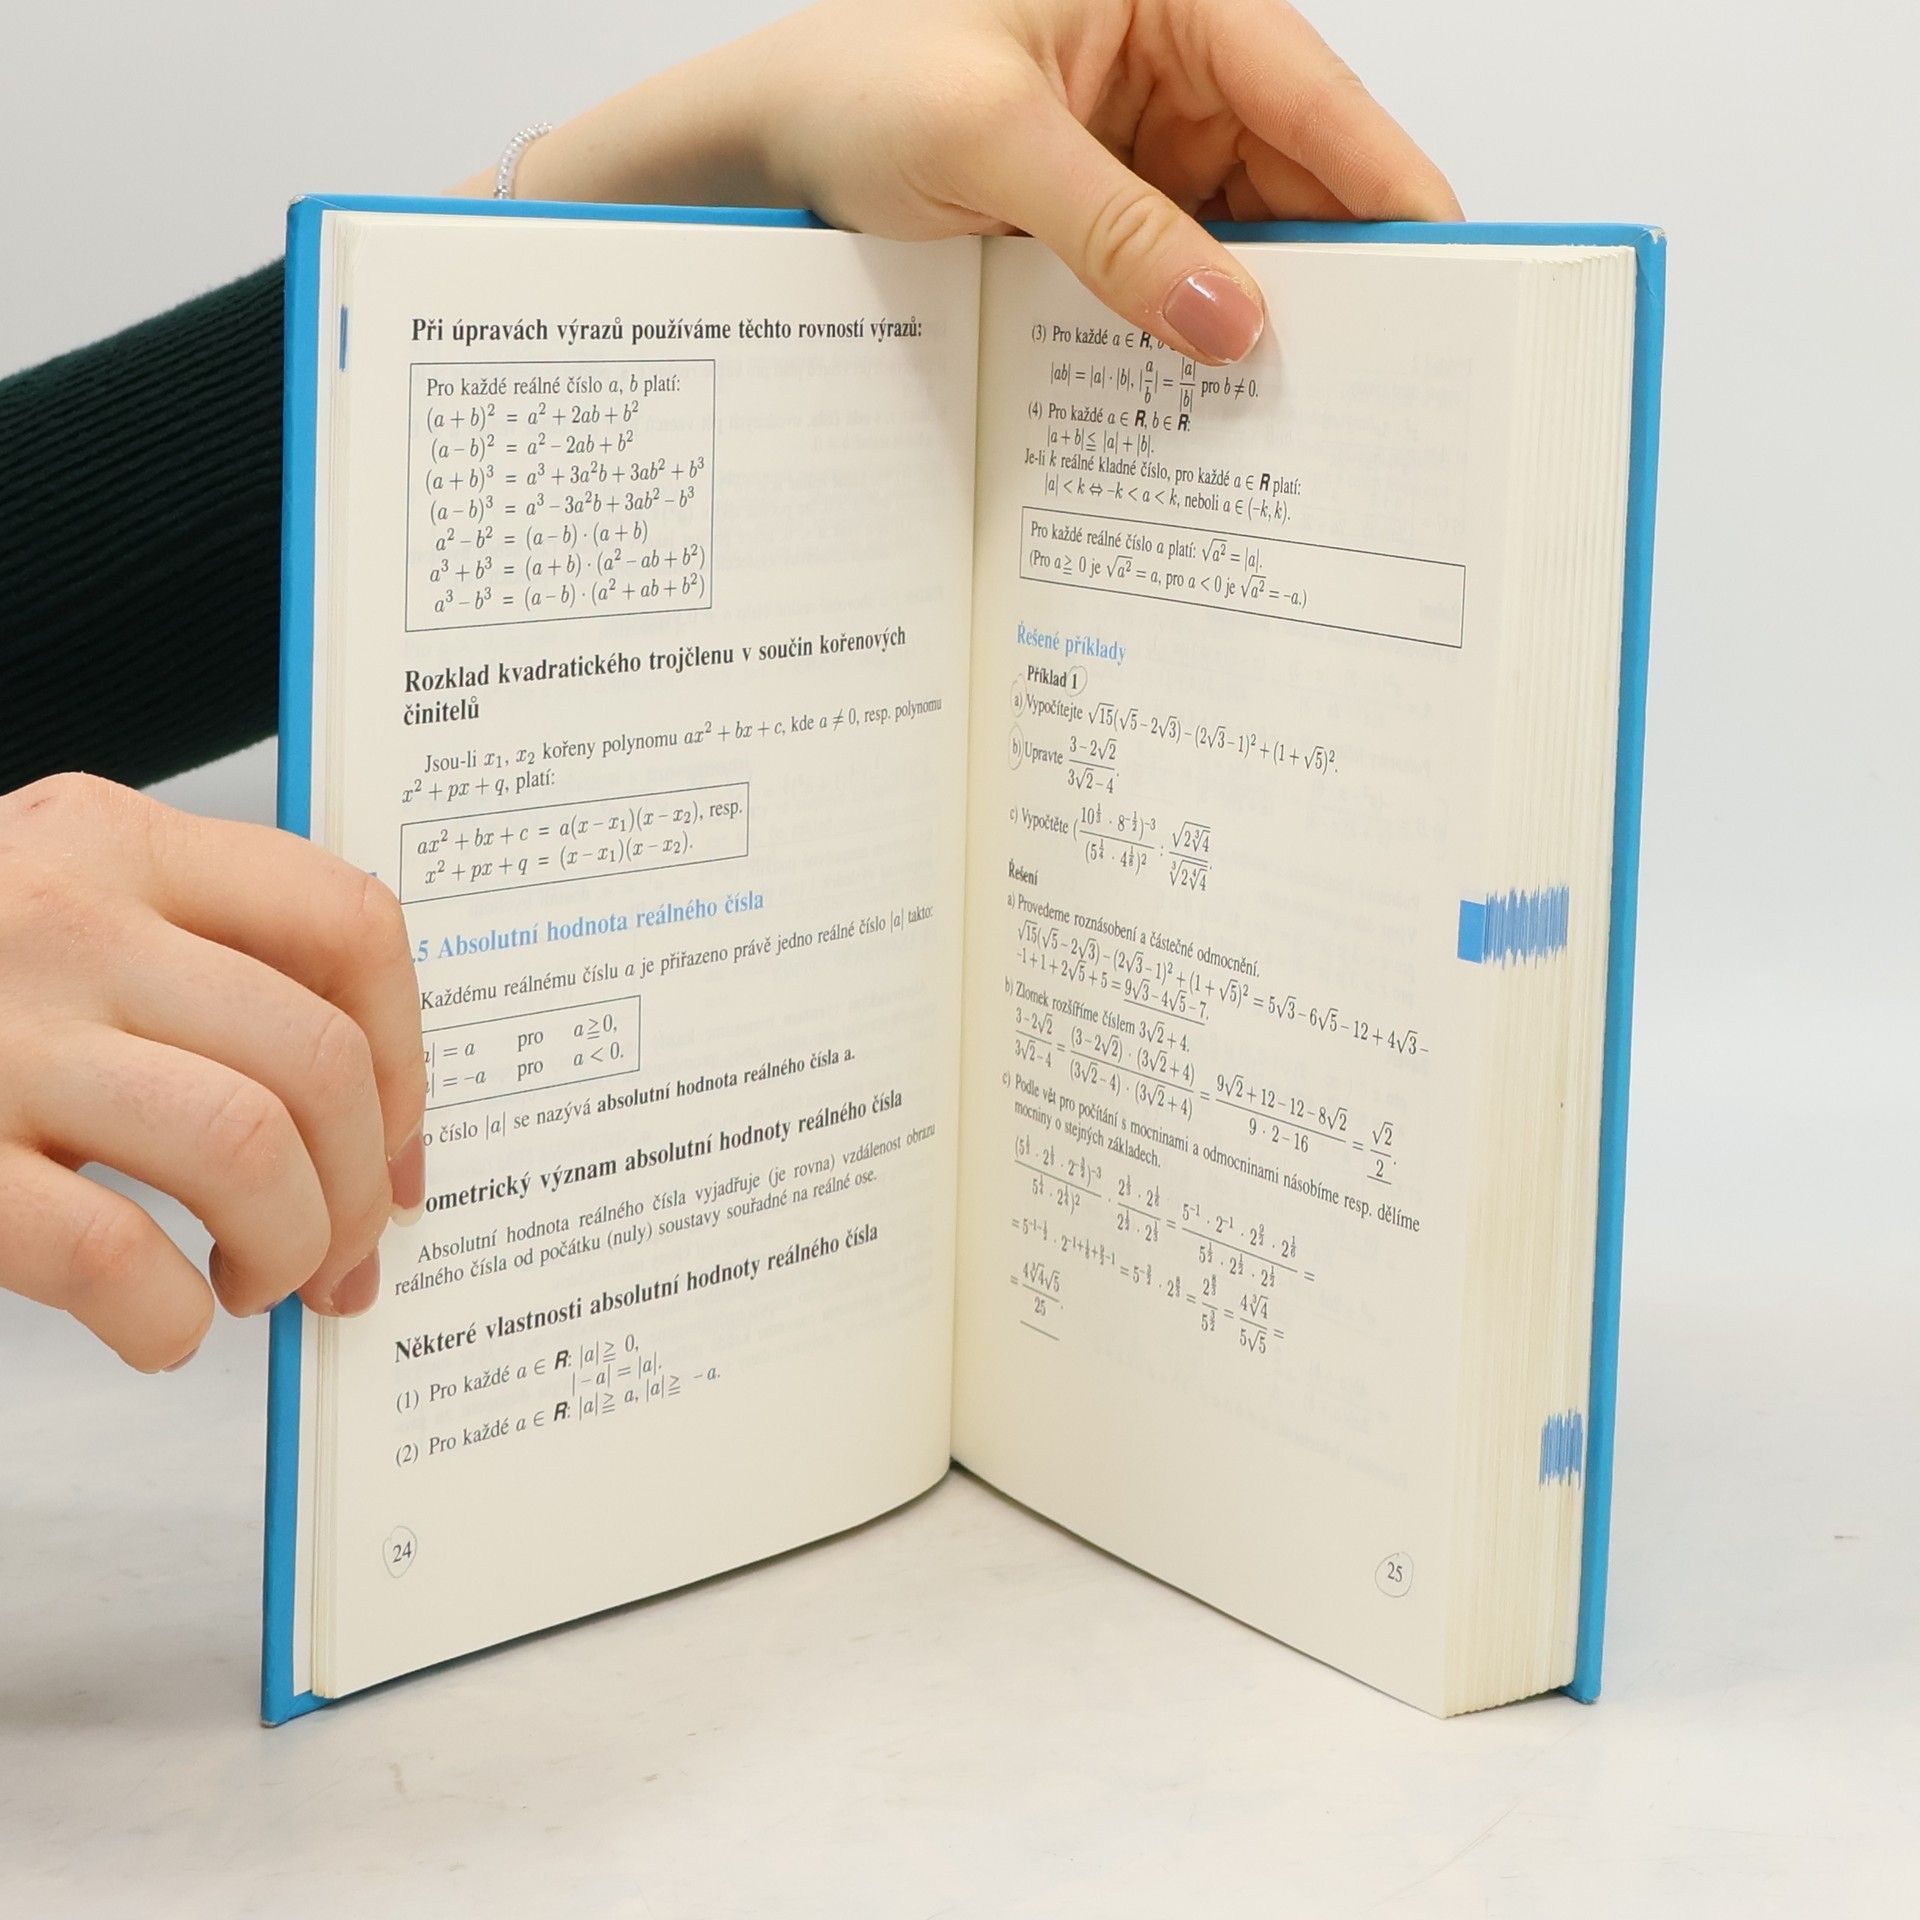 Při úpravách výrazů používáme těchto rovností výrazů:
Pro každé reálné číslo a, b platí:
(a + b)² = a² + 2ab + b²
(a – b)² = a² – 2ab + b²
(a + b)³ = a³ + 3a²b + 3ab² + b³
(a – b)³ = a³ – 3a²b + 3ab² – b³
a² – b² = (a – b) · (a + b)
a³ + b³ = (a + b) · (a² – ab + b²)
a³ – b³ = (a – b) · (a² + ab + b²)
Rozklad kvadratického trojčlenu v součin kořenových
činitelů
Jsou-li x₁, x₂ kořeny polynomu ax² + bx + c, kde a ≠ 0, resp. polynomu
x² + px + q, platí:
ax² + bx + c = a(x – x₁)(x – x₂), resp.
x² + px + q = (x – x₁)(x – x₂).
.5 Absolutní hodnota reálného čísla
Každému reálnému číslu a je přiřazeno právě jedno reálné číslo |a| takto:
| = a pro a ≧ 0,
| = –a pro a < 0.
o číslo |a| se nazývá absolutní hodnota reálného čísla a.
ometrický význam absolutní hodnoty reálného čísla
Absolutní hodnota reálného čísla vyjadřuje (je rovna) vzdálenost obrazu
reálného čísla od počátku (nuly) soustavy souřadné na reálné ose.
Některé vlastnosti absolutní hodnoty reálného čísla
(1) Pro každé a ∈ R: |a| ≧ 0,
| – a| = |a|.
(2) Pro každé a ∈ R: |a| ≧ a, |a| ≧ – a.
24
(3) Pro každé a ∈ R,
|ab| = |a| · |b|, |a/b| = |a|/|b| pro b ≠ 0.
(4) Pro každé a ∈ R, b ∈ R:
|a + b| ≦ |a| + |b|.
Je-li k reálné kladné číslo, pro každé a ∈ R platí:
|a| < k ⇔ –k < a < k, neboli a ∈ (–k, k).
Pro každé reálné číslo a platí: √a² = |a|.
(Pro a ≧ 0 je √a² = a, pro a < 0 je √a² = –a.)
Řešené příklady
Příklad 1
a) Vypočítejte √15(√5 – 2√3) – (2√3 – 1)² + (1 + √5)².
b) Upravte (3 – 2√2)/(3√2 – 4).
c) Vypočtěte
Řešení
a) Provedeme roznásobení a částečné odmocnění.
√15(√5 – 2√3) – (2√3 – 1)² + (1 + √5)² = 5√3 – 6√5 – 12 + 4√3 –
–1 + 1 + 2√5 + 5 = 9√3 – 4√5 – 7.
b) Zlomek rozšíříme číslem 3√2 + 4.
(3 – 2√2)/(3√2 – 4) = ((3 – 2√2) · (3√2 + 4))/((3√2 – 4) · (3√2 + 4)) = (9√2 + 12 – 12 – 8√2)/(9 · 2 – 16) = √2/2.
c) Podle vět pro počítání s mocninami a odmocninami násobíme resp. dělíme
mocniny o stejných základech.
= 4∛4/5√5 =
= 4∛4√5/25.
25